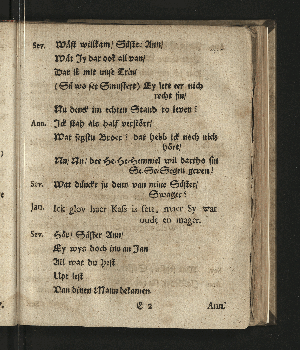 Sev. Wäst willkam/ Süster Ann/
Wät Jy dar ook all van/
Dat ik mit myse Trin/
(Sü wo set Sinustert) Ey lett eer nich
recht fin/
Nu denck im echten Stand to leven?
Ann. Ick stah als half verstört/
Wat segstu Broer? dat hebb ick noch nich
hört/
Nu/ Nu/ der He-He-Hemmel wil dartho sin
Se-Se-Segen geven!
Sev. Wat dünckt ju denn van mine Süster/
Swager?
Jan. Ick glov haer Kass is fett, maer Sy war
oude en mager.
Sev. Hör/ Süster Ann/
Ey wys doch inn an Jan
All wat du hest
Upt lest
Van dinen Mann bekamen.
E 2 Ann.